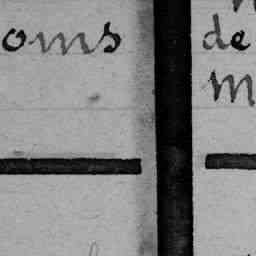 oms
de